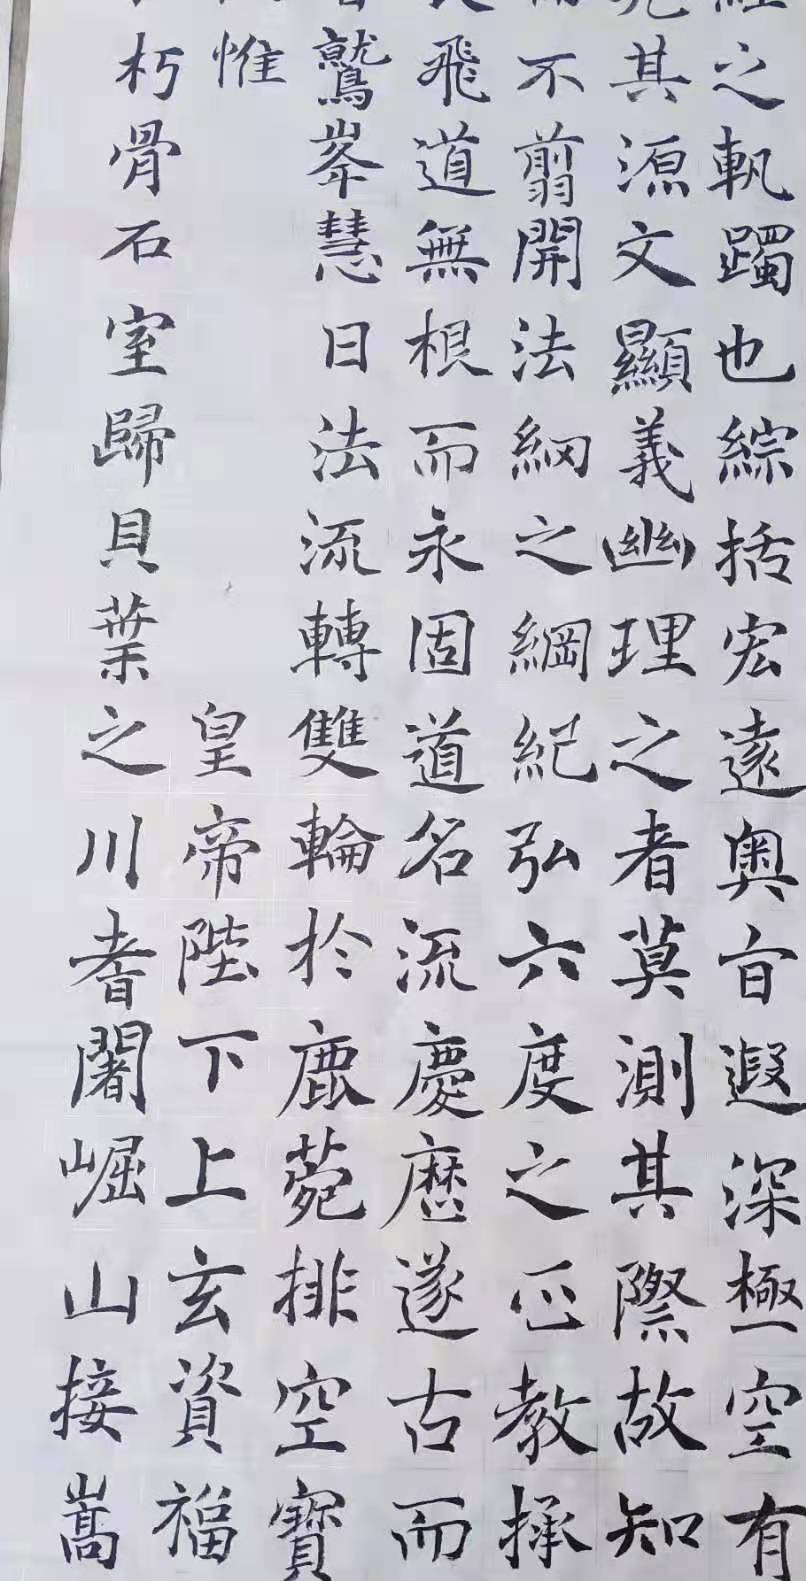 之軌躅也綜括宏遠奧旨遐深極空有
其源文顯義幽理之者莫測其際故知
不翦開法網之綱紀弘六度之正教拯
飛道無根而永固道名流慶歷遂古而
鷲峯慧日法流轉雙輪於鹿菀排空寶
惟 皇帝陛下上玄資福
朽骨石室歸貝葉之川耆闍崛山接嵩